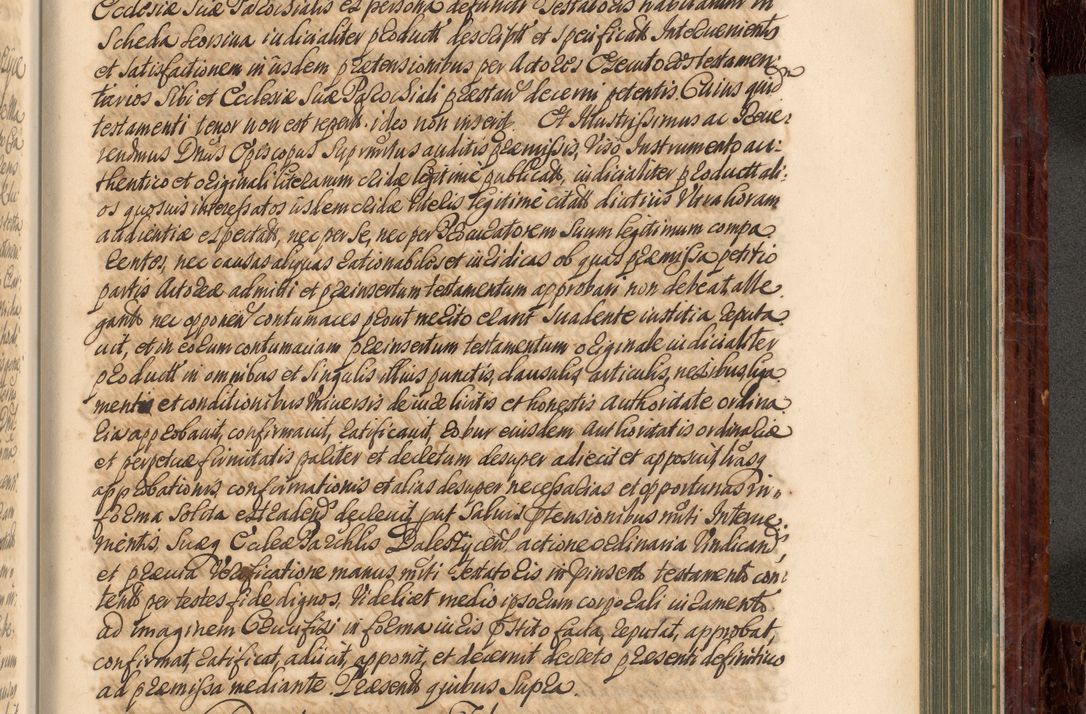 Ecclesiæ suæ Parochialis et persona defuncti Testatoris habitarum in
Scheda seorsiva iudicialiter product descript et specificat Interuenientis
et satisfactionem in iisdem prætensionibus per Actores Executores testamen
tarios Sibi et Ecclesiæ Suæ Parochiali præstan decerni petentis Cuius quid
testamenti tenor non est repert. ideo non inserit. Et Illustrissimus ac Reue:
rendmus Dnus Episcopus Supranttus auditis præmissis, Viso Instrumento au:
thentico et originali literarum cridæ legitime publicat, iudicialiter product ali:
os quosuis interessatos iisdem cridæ literis legitime citatt diutius Vltra horam
audientiæ expectatt, nec per se, nec per Procuratorem Suum legitimum compa
rentes, nec causas aliquas rationabiles et iuridicas ob quas præmissa petitio
partis Actoreæ admitti et præinsertum testamentum approbari non debeat, alle
gantt nec opponen contumaces prout merito erant suadente iustitia reputa
uit, et in eorum contumaciam præinsertum testamentum originale iudicialiter
product in omnibus et singulis illius punctis, clausulis, articulis, nexibus, liga
mentis et conditionibus Vniuersis de iure licitis et honestis authoritate ordina
ria approbauit, confirmauit, ratificauit, robur eiusdem authoritatis ordinariæ
et perpetuæ firmitatis pariter et decretum desuper adiecit et apposuit, lrasq
approbationis, confirmationis et alias desuper necessarias et opportunas in
forma solita extraden decreuit, put saluis ptensionibus niti Interue
nientis Suæq Ecclæ Parchlis actione ordinaria Vindican
et præuia Verificatione manus niti Testatoris in pinserto testamento con
tent per testes fide dignos, Videlicet medio ipsorum corporali iuramento
ad imaginem Crucifixi in forma iuris pstito facta, reputat, approbat,
confirmat, ratificat, adiicit, apponit, et decernit decreto præsenti definitiuo
ad præmissa mediante. Præsent quibus Supra.